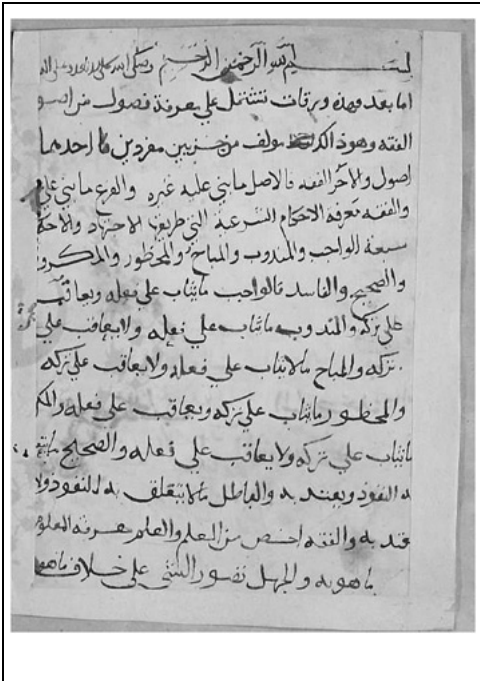 بسم الله الرحمن الرحيم وصلى الله على سيدنا محمد وعلى اله
اما بعد فهذه ورقات تشتمل على معرفة فصول من اصو
الفقه وهو ذالك مولف من جزيين مفردين فا احدهما
اصول والاخر الفقه فالاصل ما بني عليه غيره والفرع ما بني على
والفقه معرفة الاحكام الشرعية التي طريقها الاجتهاد والاحكا
سبعة الواجب والمندوب والمباح والمحظور والمكرو
والصحيح والفاسد فالواجب ما يثاب على فعله ويعاقب
على تركه والمندوب ما يثاب على فعله ولا يعاقب على
تركه والمباح ما لا يثاب على فعله ولا يعاقب على تركه
والمحظور ما يثاب على تركه ويعاقب على فعله والمك
ما يثاب على تركه ولا يعاقب على فعله والصحيح ما يتع
به النفوذ ويعتد به والباطل ما لا يتعلق به النفوذ ولا
يعتد به والفقه اخص من العلم والعلم معرفة المعلوم
ما هو به والجهل تصور الشي على خلاف ما هو